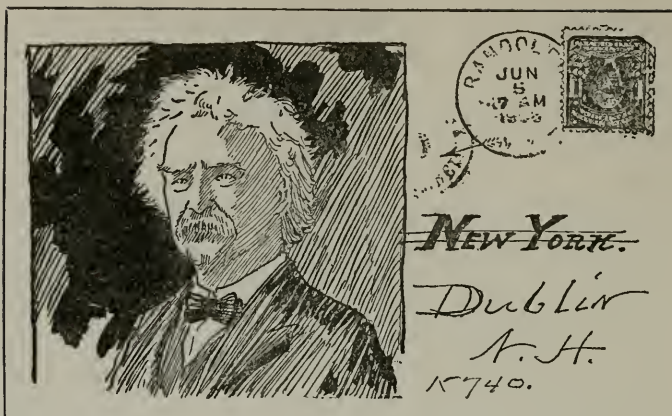 RANDOL
JUN
5
7 AM
NEW YORK.
Dublin
N. H.
15740.